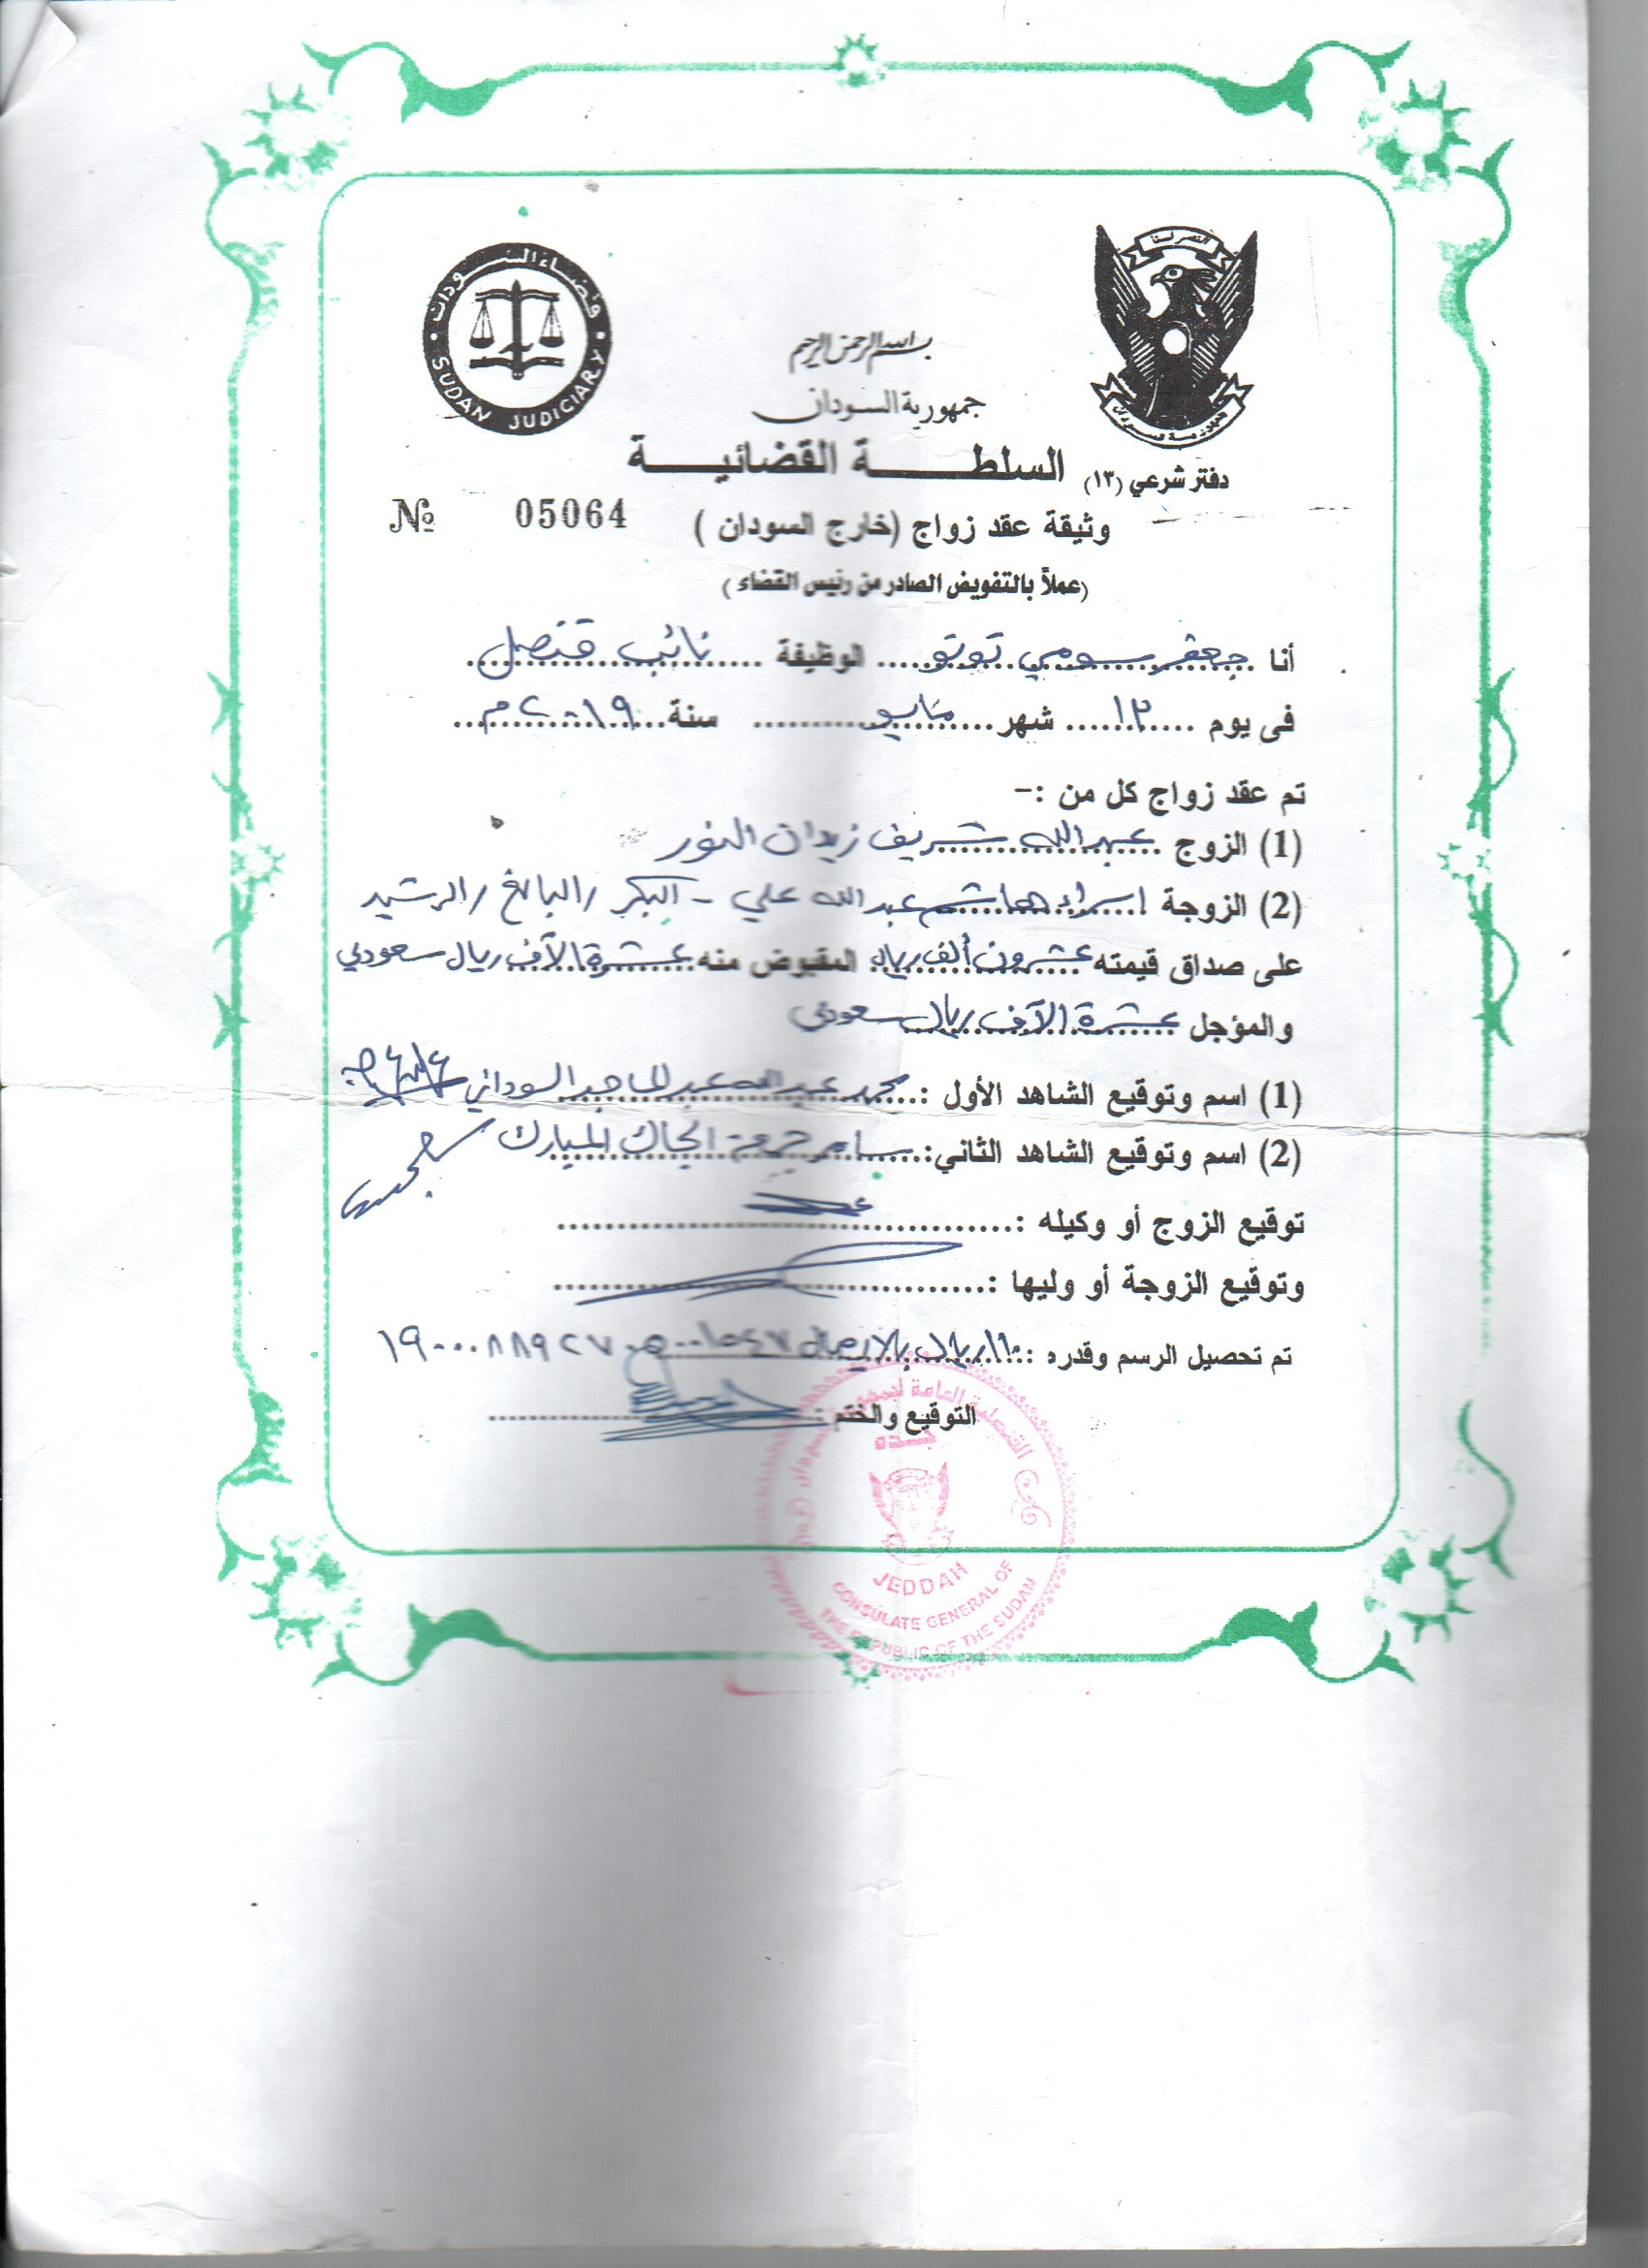 النصر لنا
جمهورية السودان
قضاء السودان
SUDAN JUDICIARY
بسم الله الرحمن الرحيم
جمهورية السودان
السلطة القضائية
دفتر شرعي (١٣)
№ 05064
وثيقة عقد زواج (خارج السودان )
(عملاً بالتفويض الصادر من رئيس القضاء )
أنا جعفر سومي توتو الوظيفة نائب قنصل
فى يوم ١٣ شهر مايو سنة ٢٠١٩م
تم عقد زواج كل من :-
(1) الزوج عبدالله شريف زيدان النور
(2) الزوجة إسراء هاشم عبدالله علي - البكر / البالغ / الرشيد
على صداق قيمته عشرون ألف ريال المقبوض منه عشرة الآف ريال سعودي
والمؤجل عشرة الآف ريال سعودي
(1) اسم وتوقيع الشاهد الأول : محمد عبدالله عبدالماجد السوداني
(2) اسم وتوقيع الشاهد الثاني: سامر جمعة الجاك المبارك
توقيع الزوج أو وكيله :
وتوقيع الزوجة أو وليها :
تم تحصيل الرسم وقدره : ١١٠ ريال بالايصال
التوقيع والختم :
القنصلية العامة لجمهورية السودان
جدة
JEDDAH
CONSULATE GENERAL OF
THE REPUBLIC OF THE SUDAN